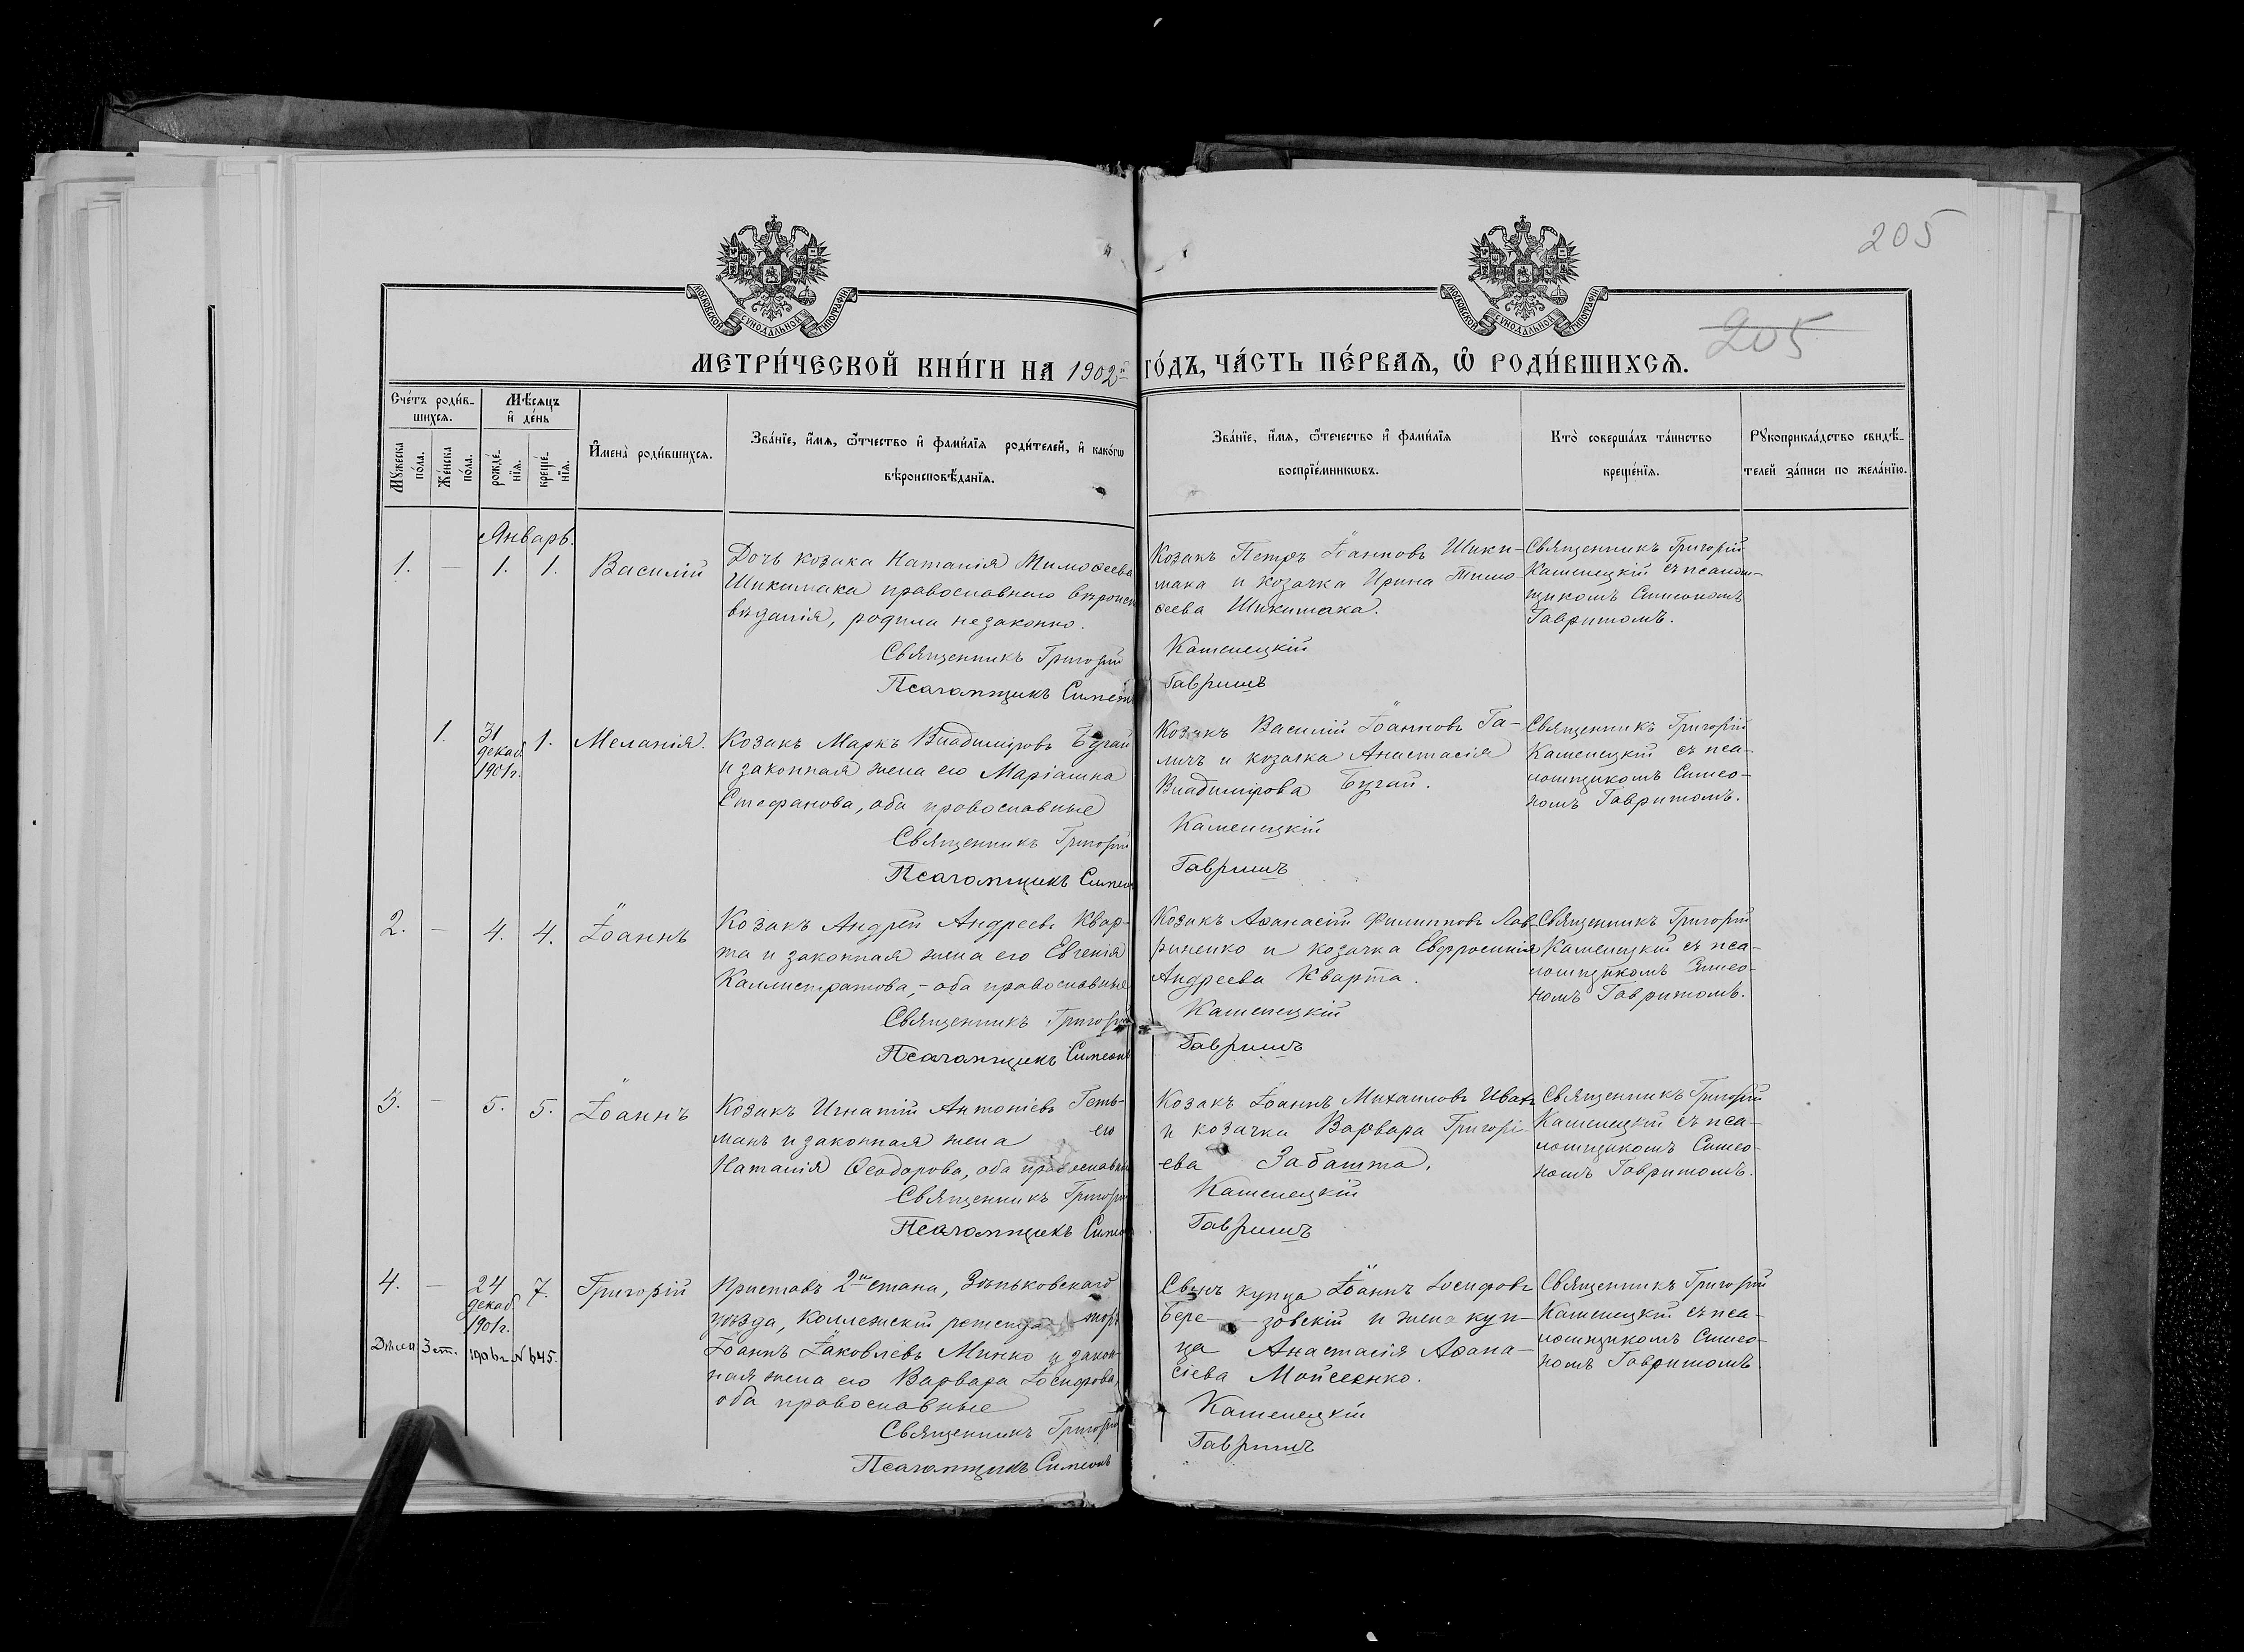 205
205
МОСКОВСКОЙ СѴНОДАЛЬНОЙ ТИПОГРАФІИ
МОСКОВСКОЙ СѴНОДАЛЬНОЙ ТИПОГРАФІИ
МЕТРИ́ЧЕСКОЙ КНИ́ГИ НА 1902й ГО́ДЪ, ЧА́СТЬ ПЕ́РВАѦ, Ѽ РОДИ́ВШИХСѦ.
Сче́тъ роди́в-
шихсѧ.
Мꙋ́жеска по́ла.
Же́нска по́ла.
Мѣ́сѧцъ
и҆ де́нь
рожде́-
нїѧ.
креще́-
нїѧ.
И҆мена̀ роди́вшихсѧ.
Зва́нїе, и҆́мѧ, ѻ҆́тчество и҆ фами́лїѧ роди́телей, и҆ како́гѡ
вѣроисповѣ́данїѧ.
Зва́нїе, и҆́мѧ, ѻ҆те́чество и҆ фами́лїѧ
воспрїе́мникѡвъ.
Кто̀ соверша́лъ та́инство
креще́нїѧ.
Рꙋкоприкла́дство свидѣ́-
телей за́писи по жела́нїю.
Январь.
1. — 1. 1. Василій
Дочь козака Наталія Тимоѳеева
Шикитака православнаго вѣроиспо
вѣданія, родила незаконно.
Священникъ Григорій
Псаломщикъ Симеонъ
Козакъ Петръ Іоанновъ Шики-
така и козачка Ирина Тимо-
ѳеева Шикитака.
Каменецкій
Гавришъ
Священникъ Григорій
Каменецкій съ псалом-
щикомъ Симеономъ
Гавришомъ.
1. 31 декаб. 1901г. 1. Меланія.
Козакъ Маркъ Владиміровъ Бугай
и законная жена его Маріамна
Стефанова, оба православные
Священникъ Григорій
Псаломщикъ Симеонъ
Козакъ Василій Іоанновъ Га-
личъ и козачка Анастасія
Владимірова Бугай.
Каменецкій
Гавришъ
Священникъ Григорій
Каменецкій съ пса-
ломщикомъ Симео-
номъ Гавришомъ.
2. — 4. 4. Іоаннъ
Козакъ Андрей Андреевъ Квар-
та и законная жена его Евгенія
Каллистратова, - оба православные
Священникъ Григорій
Псаломщикъ Симеонъ
Козакъ Аѳанасій Филипповъ Лав-
риненко и козачка Евфросинія
Андреева Кварта.
Каменецкій
Гавришъ
Священникъ Григорій
Каменецкій съ пса-
ломщикомъ Симео-
номъ Гавришомъ.
3. — 5. 5. Іоаннъ
Козакъ Игнатій Антоніевъ Геть-
манъ и законная жена его
Наталія Ѳеодорова, оба православные
Священникъ Григорій
Псаломщикъ Симеонъ
Козакъ Іоаннъ Михаиловъ Ивах
и козачка Варвара Григорі-
ева Забашта.
Каменецкій
Гавришъ
Священникъ Григорій
Каменецкій съ пса-
ломщикомъ Симео-
номъ Гавришомъ.
4. — 24 декаб. 1901г. 7. Григорій
3 ст. 1906г. № 645.
Приставъ 2го стана, Зѣньковскаго
уѣзда, Коллежскій регистраторъ
Іоаннъ Іаковлевъ Минко и закон-
ная жена его Варвара Іосифова,
оба православные
Священникъ Григорій
Псаломщикъ Симеонъ
Сынъ купца Іоаннъ Іосифовъ
Бере- зовскій и жена куп-
ца Анастасія Аѳана-
сіева Мойсеенко.
Каменецкій
Гавришъ
Священникъ Григорій
Каменецкій съ пса-
ломщикомъ Симео-
номъ Гавришомъ